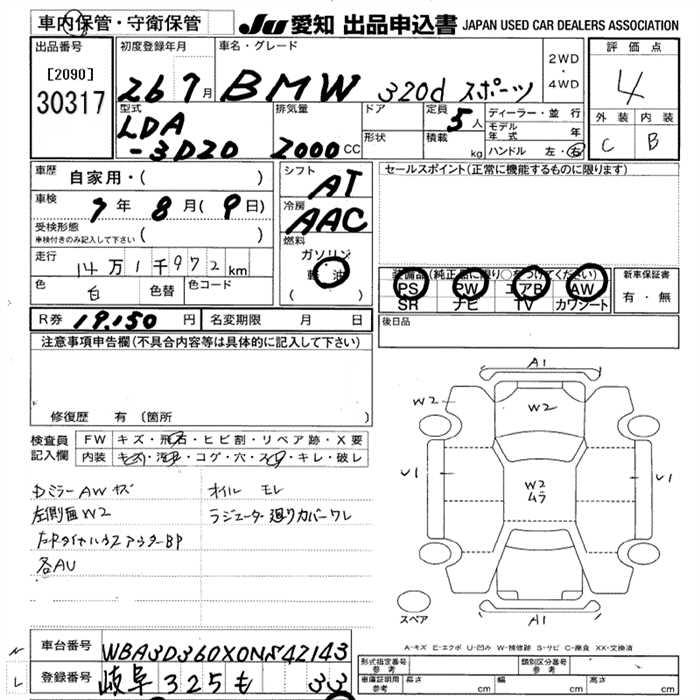 車内保管・守衛保管
JU 愛知 出品申込書 JAPAN USED CAR DEALERS ASSOCIATION
出品番号
[2090]
30317
初度登録年月
26 7月
車名・グレード
BMW 320d スポーツ
2WD
・
4WD
評価点
4
外装 内装
C B
型式
LDA
-3D20
排気量
2000cc
ドア
形状
定員
5人
積載
kg
ディーラー・並行
モデル年式 年
ハンドル 左・右
車歴
自家用・( )
車検
7年 8月(9日)
受検形態
車検付きのみ記入して下さい ( )
走行
14万1千972km
色
白
色替
色コード
シフト
AT
冷房
AAC
燃料
ガソリン
軽油
( )
セールスポイント(正常に機能するものに限ります)
装備品(純正品に限り○をつけてください)
PS PW エアB AW
SR ナビ TV カワシート
新車保証書
有・無
R券 19,150円
名変期限 月 日
後日品
注意事項申告欄(不具合内容等は具体的に記入して下さい)
修復歴 有(箇所 )
検査員
記入欄
FW キズ・飛石・ヒビ割・リペア跡・X要
内装 キズ・汚れ・コゲ・穴・スレ・キレ・破レ
Dミラー AW キズ
左側面W2
各AU
オイル モレ
ラジエーター廻りカバーワレ
A1
W2
W2
U1
W2
ムラ
U1
A1
スペア
A-キズ E-エクボ U-凹み W-補修跡 S-サビ C-腐食 XX-交換済
車台番号
WBA3D360X0NS42143
登録番号
岐阜 325 も 33
N
L
形式指定番号
参考
類別区分番号
参考
車庫証明用
参考
長さ cm
幅 cm
高さ cm